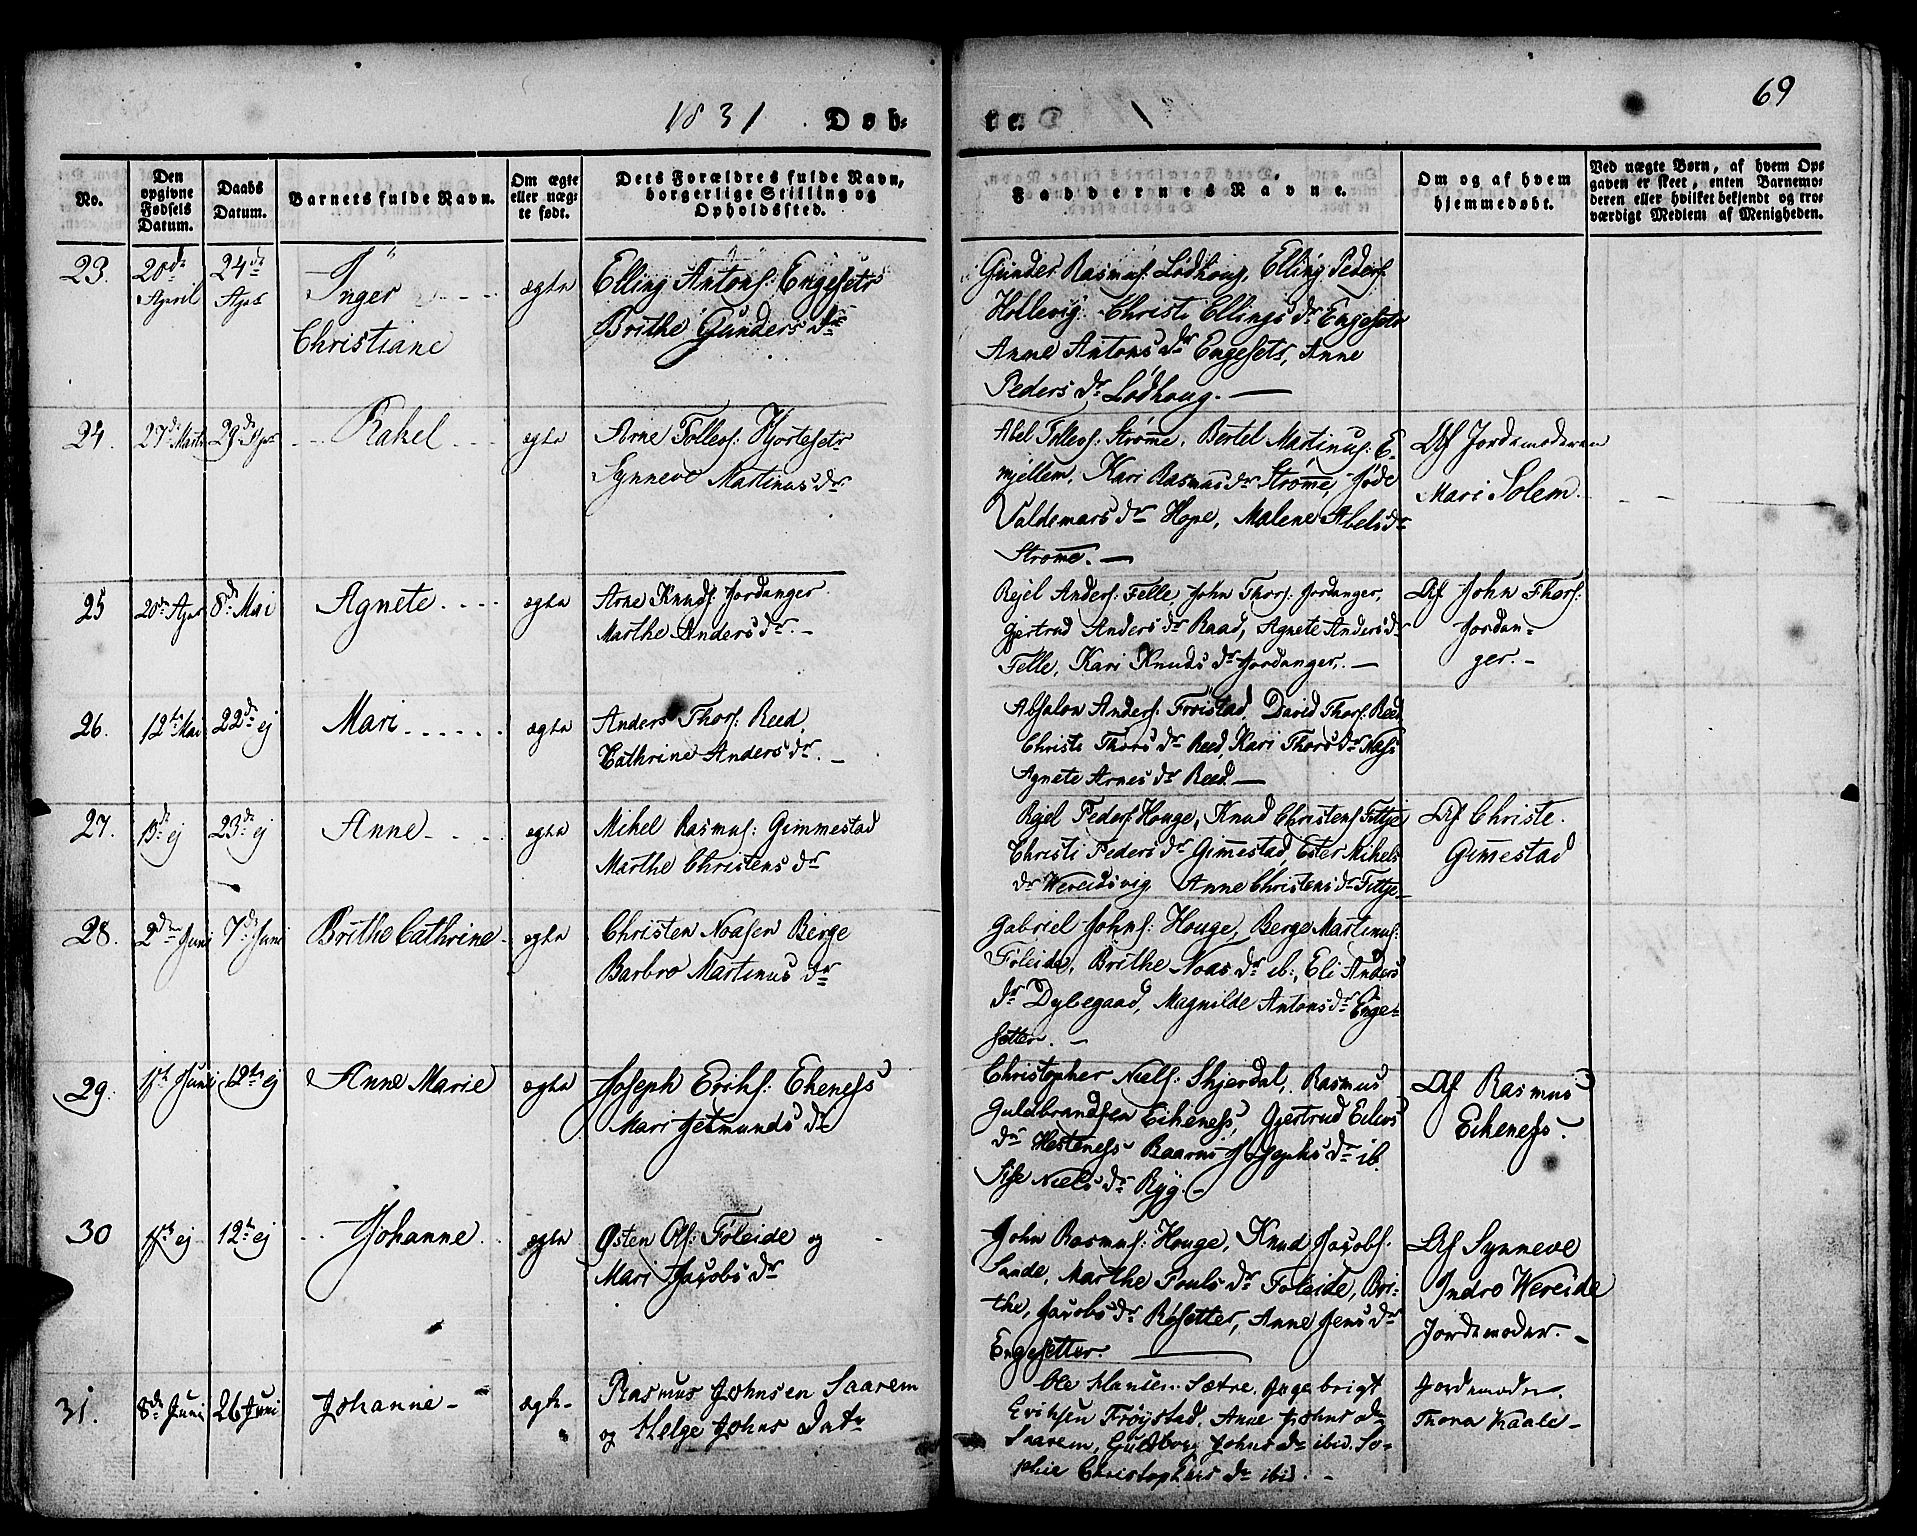 1831 Døb-
te.
69
No.
Den opgivne Fødsels Datum.
Daabs Datum.
Barnets fulde Navn.
Om ægte eller uægte født.
Dets Forældres fulde Navn, borgerlige Stilling og Opholdssted.
Faddernes Navne.
Om og af hvem hjemmedøbt.
Ved uægte Børn, af hvem Opgaven er skeet, enten Barnemoderen eller hvilket bekjendt og troværdigt Medlem af Menigheden.
23. 20de April 24de Apr
Inger
Christiane
ægte
Elling Antons: Engesetr
Brithe Gunders dr
Gunder Rasmus: Lødhoug, Elling Peders:
Hollevig. Christi Ellings dr Engesetr
Anne Antons dr Engesetr, Anne
Peders dr Lødhoug. —
24. 27de Marts 29de Apr
Rakel
ægte
Arne Tolleos: Hjortesetr
Synneve Martinus dr
Abel Tolleos: Strøme, Bertel Martinus: E-
mjellem, Kari Rasmus dr Strøme, Jøde
Valdemars dr Hope, Malene Abels dr
Strøme. —
Af Jordemoderen
Mari Solem.
25 20de Apr 8de Mai
Agnete
ægte
Arne Knuds: Jordanger
Marthe Anders dr. —
Rejel Anders: Felle, John Thors: Jordanger,
Gjertrud Anders dr Raad, Agnete Anders dr
Felle, Kari Knuds dr Jordanger. —
Af John Thors:
Jordan-
ger. —
26. 12te Mai 22de ej
Mari
ægte
Anders Thors: Reed,
Cathrine Anders dr. —
Absalon Anders: Frøistad, David Thors: Reed
Christi Thors dr Reed, Kari Thors dr Næss
Agnete Arnes dr Reed —
27. ej 23de ej
Anne
ægte
Mikel Rasmus: Gimmestad
Marthe Christens dr
Rejel Peders: Houge, Knud Christens: Fittje
Christi Peders dr Gimestad, Ester Mikels
dr Wereidsvig, Anne Christens dr Fittje
Af Christe
Gimestad
28. 2den Juni 7de Juni
Brithe Cathrine
ægte
Christen Noasen Berge
Barbro Martinus dr
Gabriel Johns: Houge, Berge Martinus:
Føleide, Brithe Noas dr ib:, Eli Anders
dr Dybegaad, Magnilde Antons dr Enge-
setter. —
29. 1ste Juni 12te ej
Anne Marie
ægte
Joseph Eriks: Ekeness
Mari Jetmunds dr
Christopher Niels: Skjerdal, Rasmus
Guldbrandsen Eikeness, Gjertrud Eilers
dr Hesteness Raarni Josephs dr ib.
Sise Niels dr Ryg. —
Af Rasmus
Eikeness.
30 1ste ej 12te ej
Johanne
ægte
Østen Ols: Føleide og
Mari Jacobs dr
John Rasmus: Houge, Knud Jacobs:
Sande, Marthe Pouls dr Føleide, Bri-
the, Jacobs dr Røsetter, Anne Jens dr
Engesetter.
Af Synneve
Indro Wereide
Jordemoder. —
31. 8de Juni 26 Juni
Johanne
ægte
Rasmus Johnsen Saarem
og Helge Johns Datr
Ole Hansen Sætre, Ingebrigt
Eriksen Frøystad, Anne Johns dr
Saarem, Guldborg Johns dr ibid. So-
phie Christophers dr ibid. —
Jordemodr.
Thora Kaale —